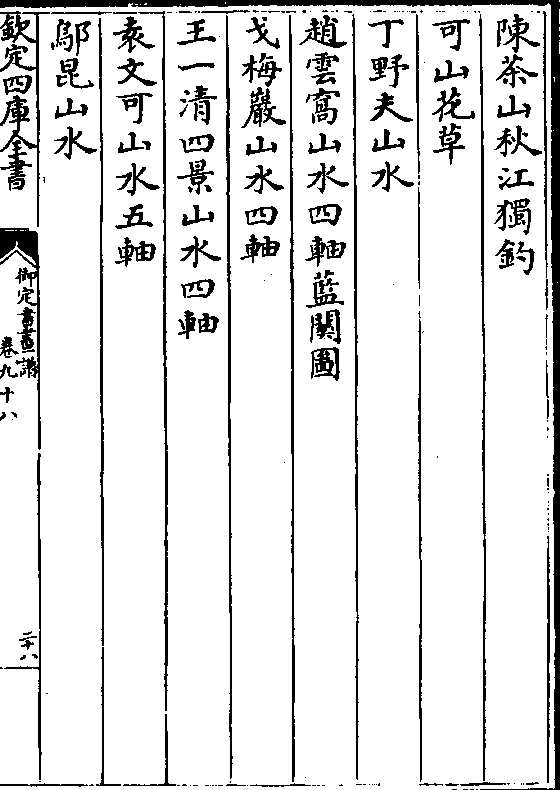 陳茶山秋江獨釣
可山花草
丁野夫山水
趙雲窩山水四軸藍關圖
戈梅巖山水四軸
王一清四景山水四軸
袁文可山水五軸
鄔昆山水
欽定四庫全書
御定書畫譜
卷九十八
二十八